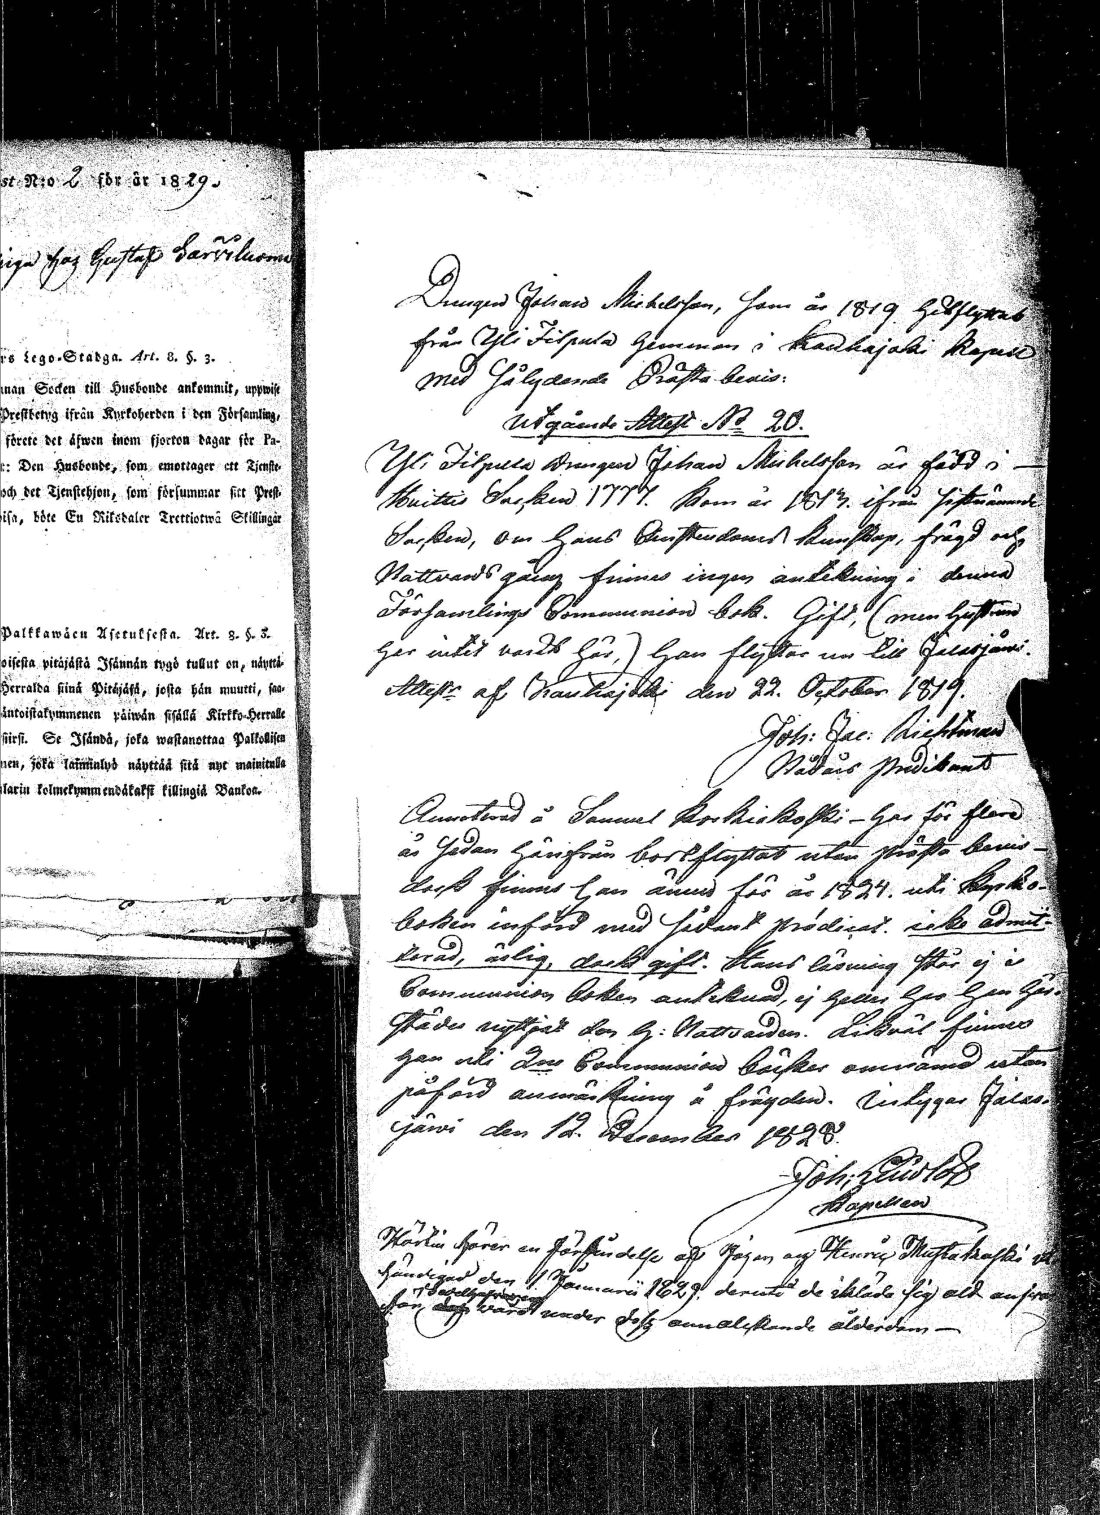 st N:o 2 för år 1829.
piga hoz Gustaf
rs Lego-Stadga. Art. 8. §. 3.
nnan Socken till Husbonde ankommit, uppwise
Prestbetyg ifrån Kyrkoherden i den Församling,
förete det äfwen inom fjorton dagar för Pa-
t: Den Husbonde, som emottager ett Tjenste-
och det Tjenstehjon, som försummar sitt Prest-
isa, böte En Riksdaler Trettiotwå Skillingar
Palkkawäen Asetuksesta. Art. 8. §. 3.
oisesta pitäjästä Isännän tygö tullut on, näyttä-
Herralda siinä Pitäjäsä, josta hän muutti, saa-
äntoistakymmenen päiwän sisällä Kirkko-Herralle
siirsi. Se Isändä, joka wastanottaa Palkollisen
nen, joka laiminlyö näyttää sitä nyt mainitulla
alarin kolmekymmendäkaksi killingiä Bankoa.
Drengen Johan Michelsson, som år 1819 hitflyttat
från Yli Filpula hemman i Kauhajoki Kapell
med sålydande Prästa bevis:
Utgående Attest No 20.
Yli Filpula Drengen Johan Michelsson är född i
Huittis Socken 1777. Kom år 1813. ifrån sistnämnde
Socken, om hans Christendoms kunskap, frägd och
Nattvards gång finnes ingen antekning i denna
Församlings Communion bok. Gift, (men hustrun
har intet varit här,) han flyttar nu till Jalasjärvi.
Attestr af Kauhajoki den 22. October 1819.
Joh: Jac: Richtman
Nådårs Predikant
Annoterad å Samuel Koskikoski – har för flera
år sedan härifrån bortflyttat utan prästa bevis –
dock finnes han ännu för år 1824. uti Kyrko-
boken införd med sådant prædicat. icke admit-
terad, ärlig, dock gift. Hans läsning står ej i
Communion boken anteknad, ej heller har han här-
städes nyttjat den H: Nattvarden. Likväl finnes
han uti Communion böcker omnämd utan
påförd anmärkning å frägden. Intygar Jalas-
järvi den 12. December 1828.
Joh:
Kapellan
Härtin hörer en Förbindelse af Jöran och Henric Mustakoski
händigad den 1 Januarii 1829. deruti de iklädt sig
vård under dess annalkande ålderdom –